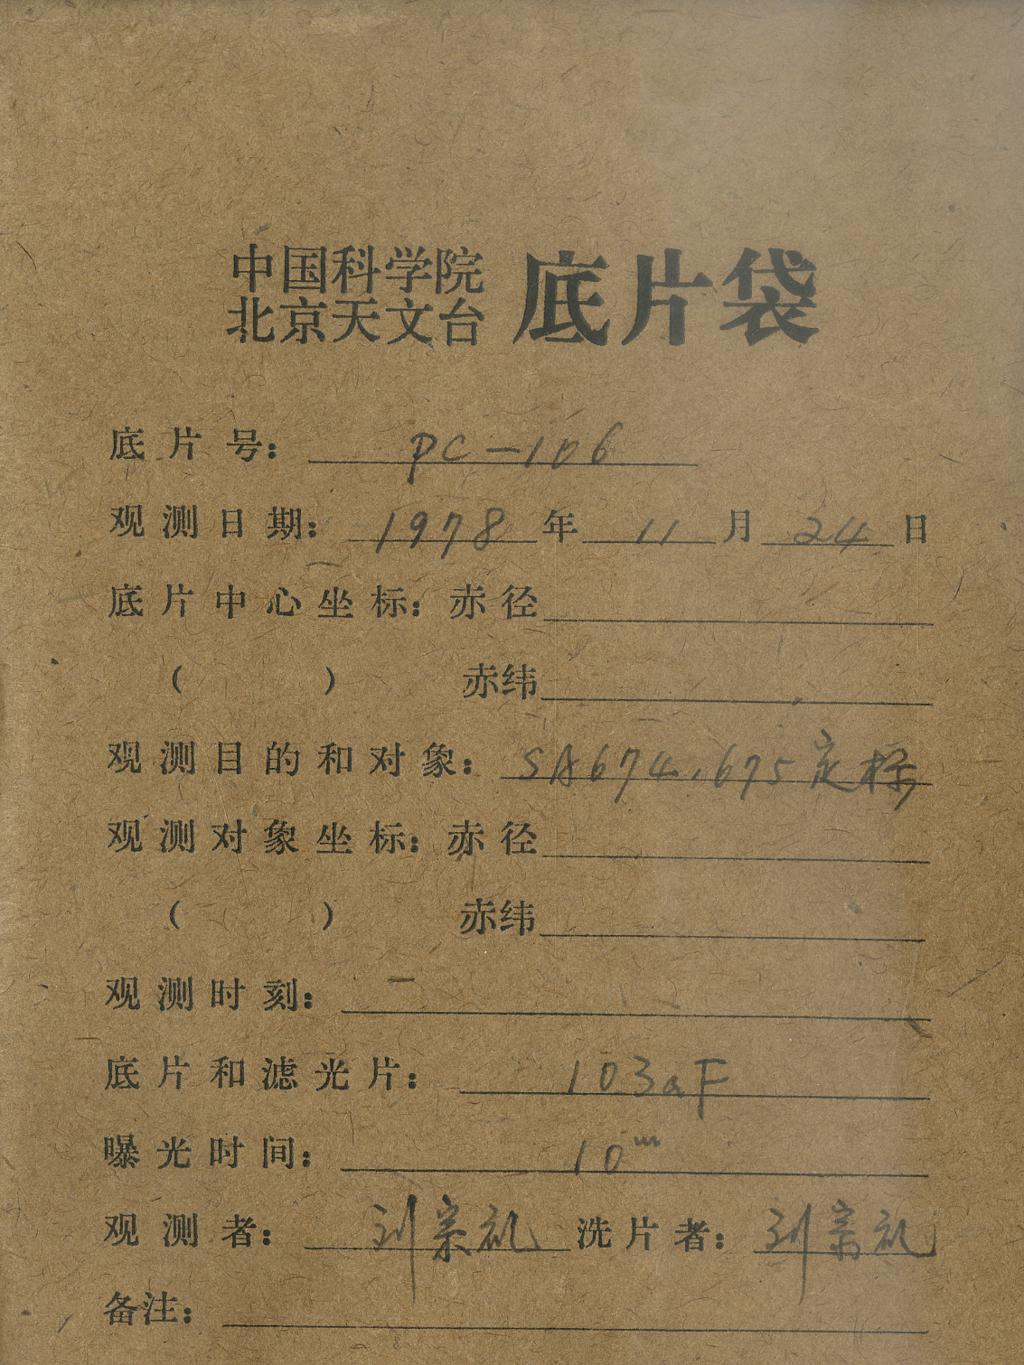 中国科学院
北京天文台
底片袋
底片号: PC-106
观测日期: 1978年11月24日
底片中心坐标: 赤径
( ) 赤纬
观测目的和对象: SA674,675定标
观测对象坐标: 赤径
( ) 赤纬
观测时刻:
底片和滤光片: 103aF
曝光时间: 10m
观测者: 刘宗礼 洗片者: 刘宗礼
备注: